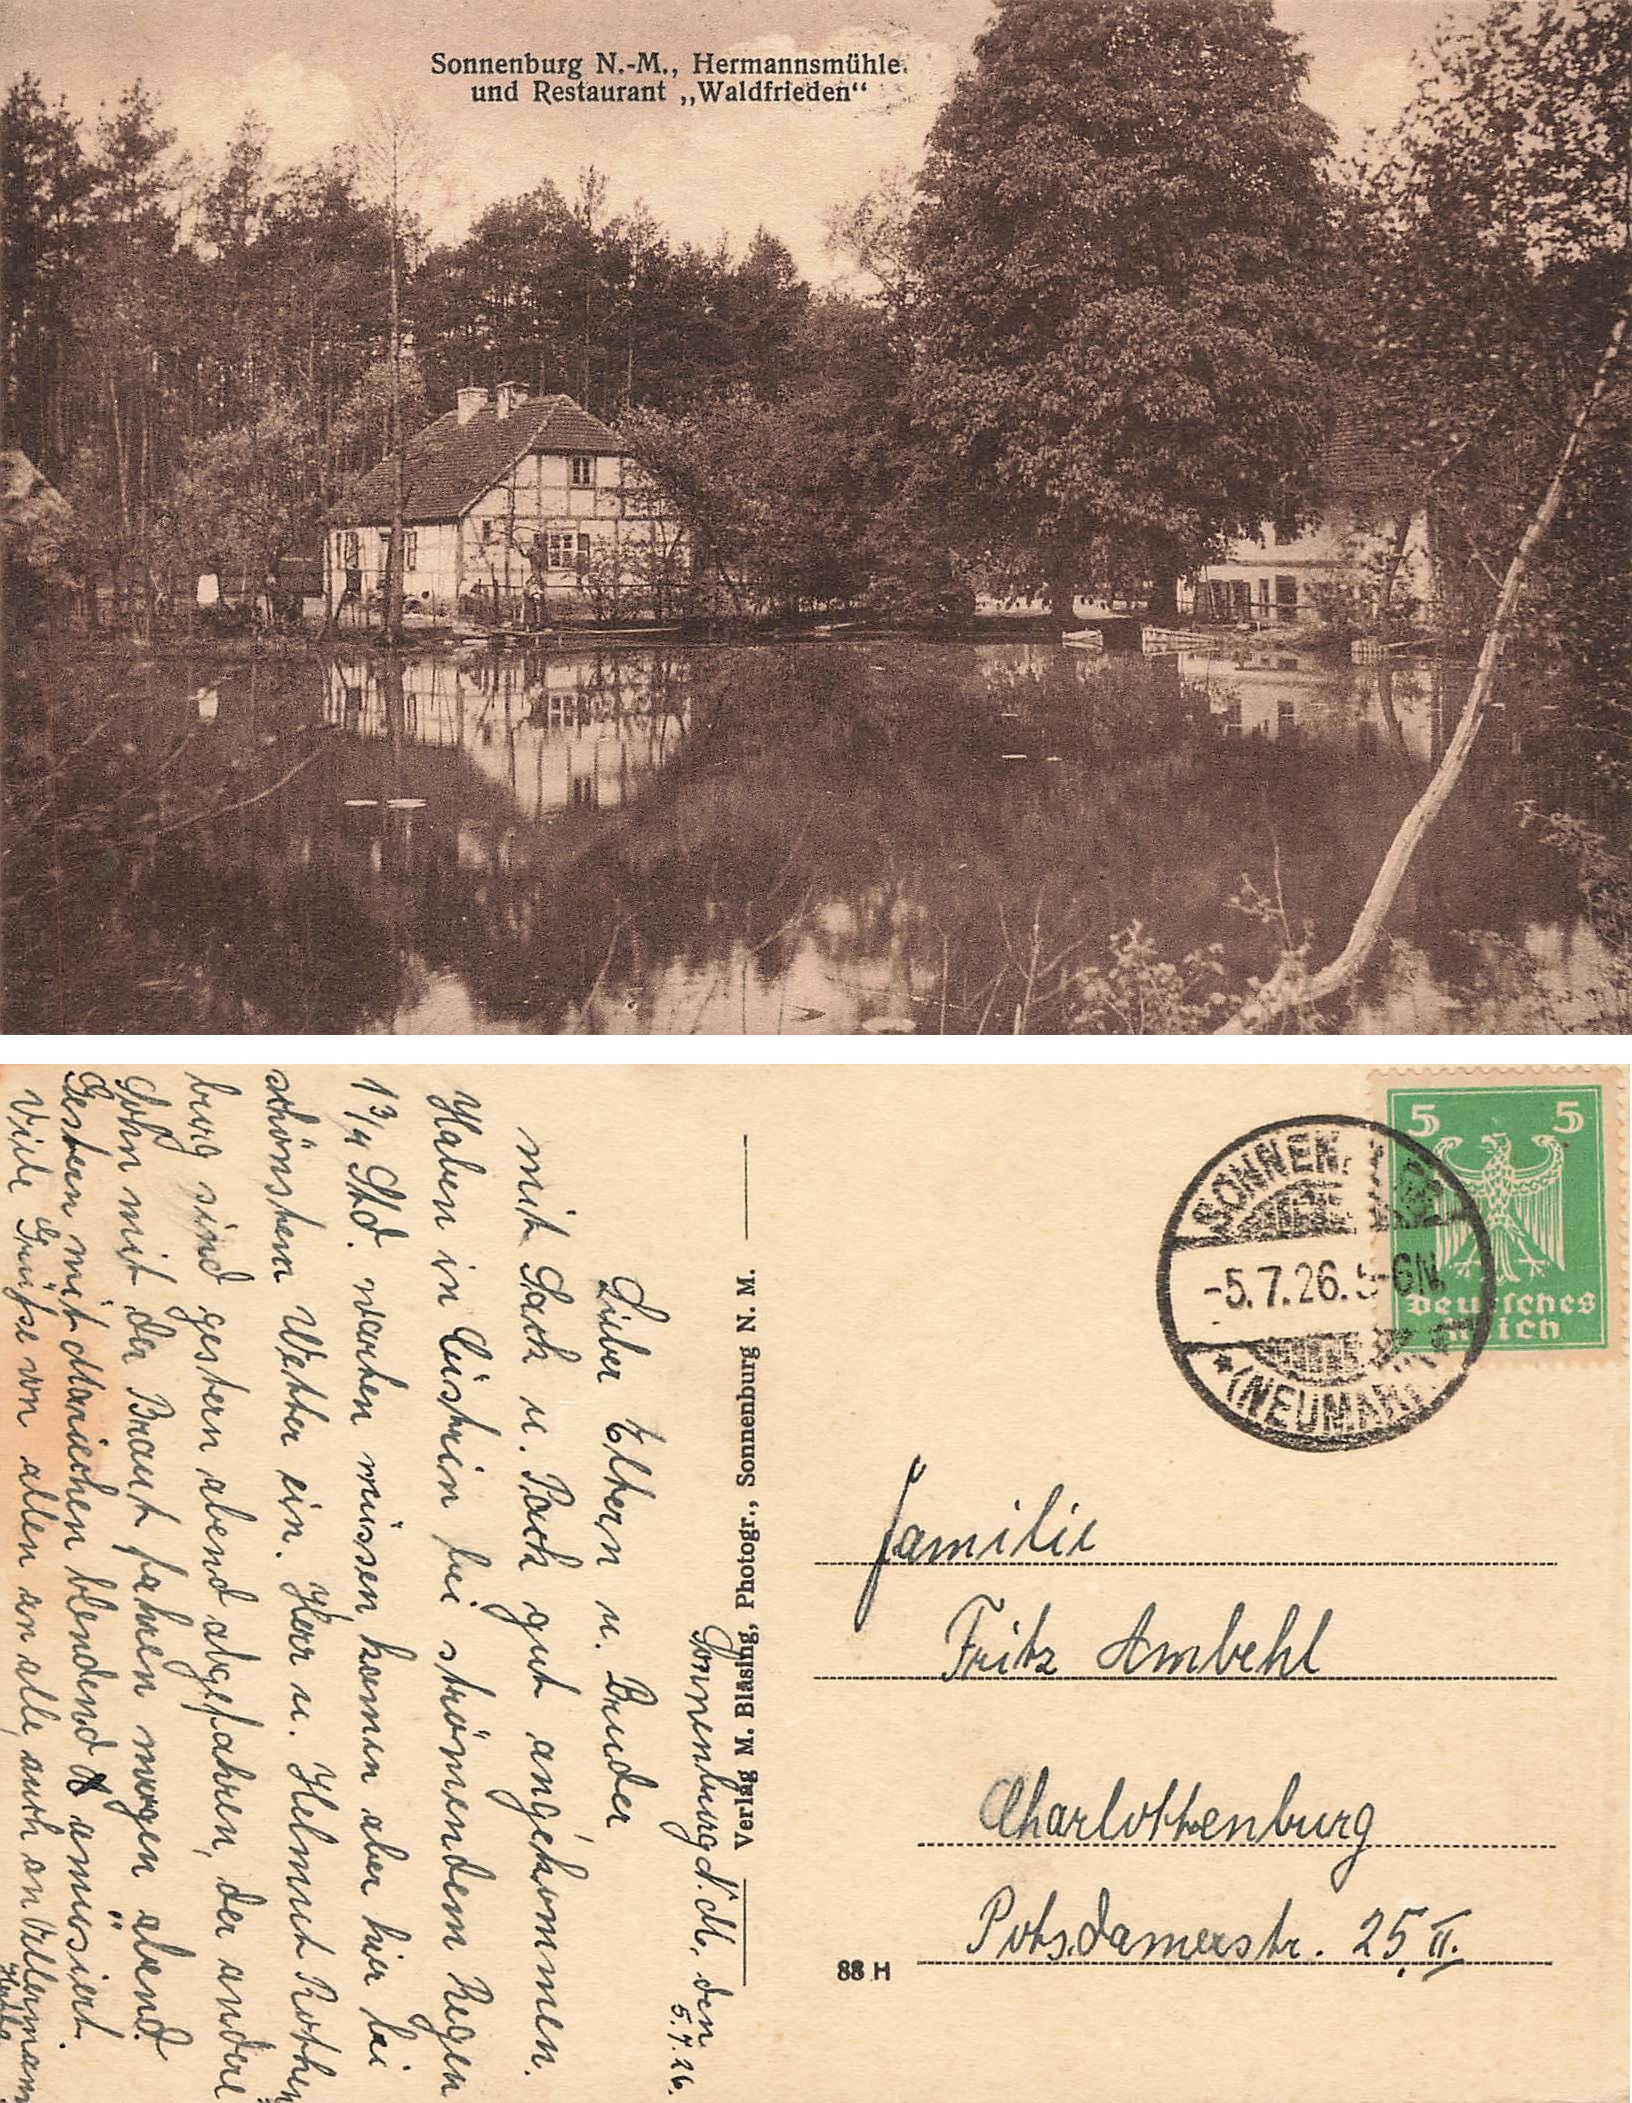 Sonnenburg N.-M., Hermannsmühle.
und Restaurant „Waldfrieden“
5 5
Deutsches
Reich
SONNENBURG
-5.7.26. 5-6N.
* (NEUMARK) *
Familie
Fritz Ambehl
Charlottenburg
Potsdamerstr. 25 II.
88 H
Verlag M. Bläsing, Photogr., Sonnenburg N. M.
Sonnenburg N. M., den
5.7.26.
Liber Eltern u. Bruder
mit Sach u. Pach gut angekommen.
Haben in Cüstrin bei strömendem Regen
1 3/4 Std. warten müssen kamen aber hier bei
schönstem Wetter ein. Herr u. Helmut Rothen=
burg sind gestern abend abgefahren, der andere
Sohn mit der Braut fahren morgen abend.
Gestern mit Mariechen blendend amüsiert.
Viele Grüße von allen an alle, auch an